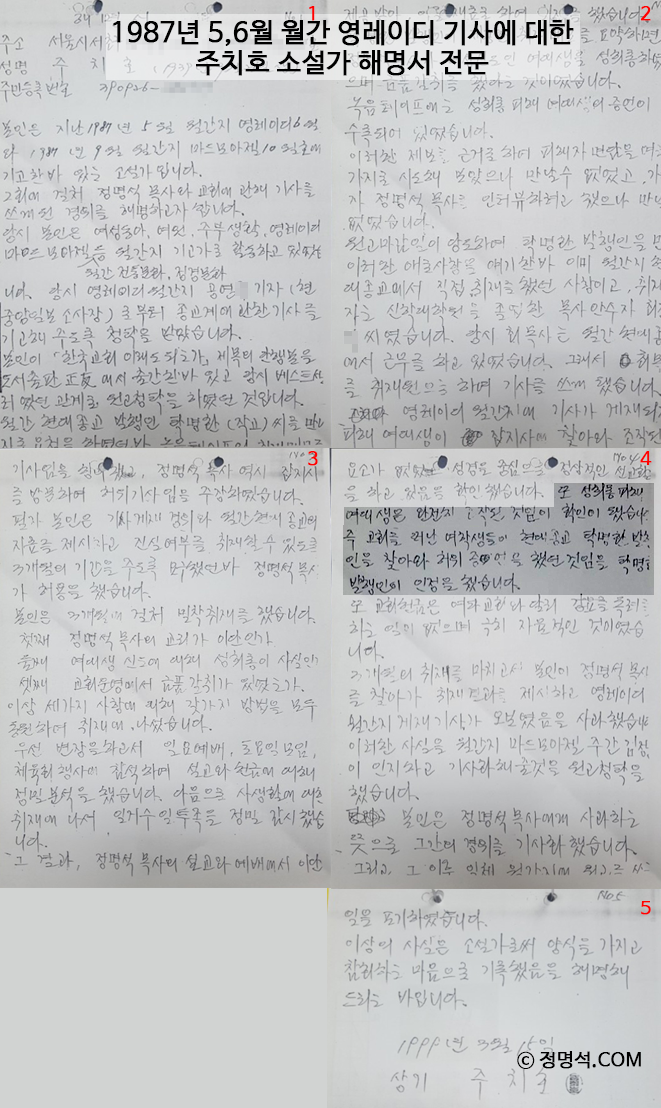 1987년 5,6월 월간 영레이디 기사에 대한
주치호 소설가 해명서 전문
1
주소 서울시 서
성명 주 치 호
주민등록번호 390926-
본인은 지난 1987년 5월 월간지 영레이디 6월
와 1987년 9월 월간지 마드모아젤 10월호에
기고한바 있는 소설가 입니다.
2회에 걸쳐 정명석 목사와 교회에 관해 기사를
쓰게된 경위를 해명하고자 합니다.
당시 본인은 여성동아, 여원, 주부생활, 영레이디
마드모아젤 등 월간지 기고가로 활동하고 있었
니다. 당시 영레이디 월간지 공연 기자(현
중앙일보 소사장)로부터 종교계에 관한 기사를
기고해 주도록 청탁을 받았습니다.
본인이 「한국교회 이래도 되는가」 제목의 단행본을
도서출판 正友에서 출간한바 있고 당시 베스트셀
러였던 관계로 원고청탁을 하였던 것입니다.
월간 현대종교 발행인 탁명환(작고)씨를 만나
2
으며 금품갈취를 했다는 것이었습니다.
녹음테이프에는 성희롱 피해 여대생의 증언이
수록되어 있었습니다.
이러한 제보를 근거로 하여 피해자 면담을 여러
가지로 시도해 보았으나 만날수 없었고, 가
자 정명석 목사를 인터뷰하려고 했으나 만나
없었습니다.
원고마감일이 당도하여 탁명환 발행인을 만
이러한 애로사항을 얘기한바 이미 월간지 현
대종교에서 직접 취재를 했던 사항이고, 취재
자는 신학대학원을 졸업한 목사 안수자 최
씨 였습니다. 당시 최목사는 월간 현대종
에서 근무를 하고 있었습니다. 그래서 최목
를 취재원으로 하여 기사를 쓰게 됐습니다.
영레이디 월간지에 기사가 게재되자
피해 여대생이 잡지사에 찾아와 조작된
3
기사임을 항의 했고, 정명석 목사 역시 잡지사
를 방문하여 허위기사 임을 주장하였습니다.
필자 본인은 기사게재 경위와 월간현대종교의
자료를 제시하고 진실여부를 취재할 수 있도록
3개월의 기간을 주도록 요청했던바 정명석 목사
가 허용을 했습니다.
본인은 3개월에 걸쳐 밀착취재를 했습니다.
첫째 정명석 목사의 교리가 이단인가
둘째 여대생 신도에 대해 성희롱이 사실인가
셋째 교회운영에서 금품갈취가 있었는가.
이상 세가지 사항에 대해 갖가지 방법을 모두
동원하여 취재에 나섰습니다.
우선 변장을 하고서 일요예배, 토요일 모임,
체육회 행사에 참석하며 설교와 헌금에 대해
정밀분석을 했습니다. 다음으로 사생활에 대한
취재에 나서 일거수 일투족을 정밀 감시했습
니다.
그 결과, 정명석 목사의 설교와 예배에서 이단
4
NO 4
요소가 없었고 성경을 중심으로 정상적인 신교활
을 하고 있음을 확인했습니다. 또 성희롱 피해
여대생은 완전히 조작된 것임이 확인이 됐습니다
주 교회를 떠난 여학생들이 현대종교 탁명환 발행
인을 찾아와 허위 증언을 했던 것임을 탁명환
발행인이 인정을 했습니다.
또 교회헌금은 여타교회와 달리 강요를 독려
하는 일이 없으며 극히 자율적인 것이었습
니다.
3개월의 취재를 마치고서 본인이 정명석 목사
를 찾아가 취재결과를 제시하고 영레이디
월간지 게재기사가 오보였음을 사과했습니다
이러한 사실을 월간지 마드모아젤 주간 김정
이 인지하고 기사화해 줄것을 원고청탁을
했습니다.
본인은 정명석 목사에게 사과하는
뜻으로 그간의 경위를 기사화 했습니다.
5
NO 5
일을 포기하였습니다.
이상의 사실은 소설가로써 양식을 가지고
참회하는 마음으로 기록했음을 해명해
드리는 바입니다.
1999년 3월 15일
상기 주 치 호
© 정명석.COM